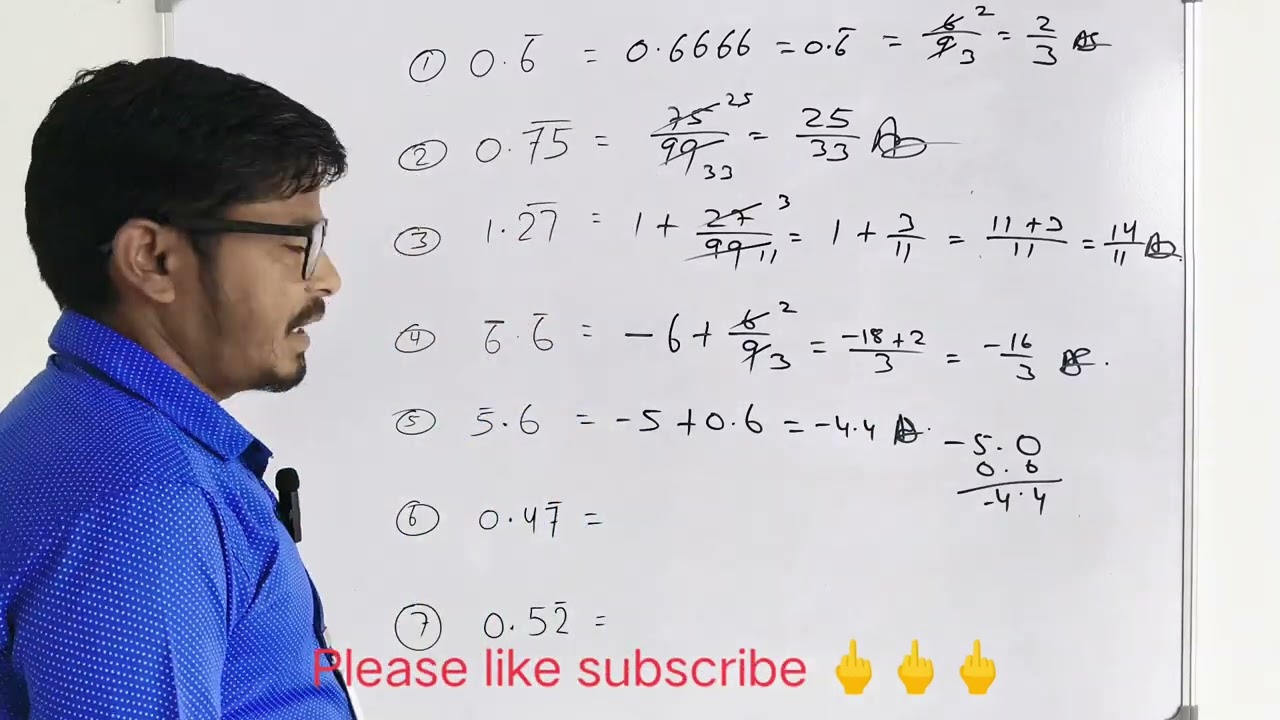 ① 0.6̄ = 0.6666 = 0.6̄ = 6/9 2 3 = 2/3
② 0.7̄5̄ = 75/99 25 33 = 25/33
③ 1.2̄7̄ = 1 + 27/99 3 11 = 1 + 3/11 = 11+3/11 = 14/11
④ 6̄.6̄ = -6 + 6/9 2 3 = -18+2/3 = -16/3
⑤ 5̄.6 = -5 + 0.6 = -4.4
-5.0
0.6
-4.4
⑥ 0.47̄ =
⑦ 0.52̄ =
Please like subscribe 🖕🖕🖕